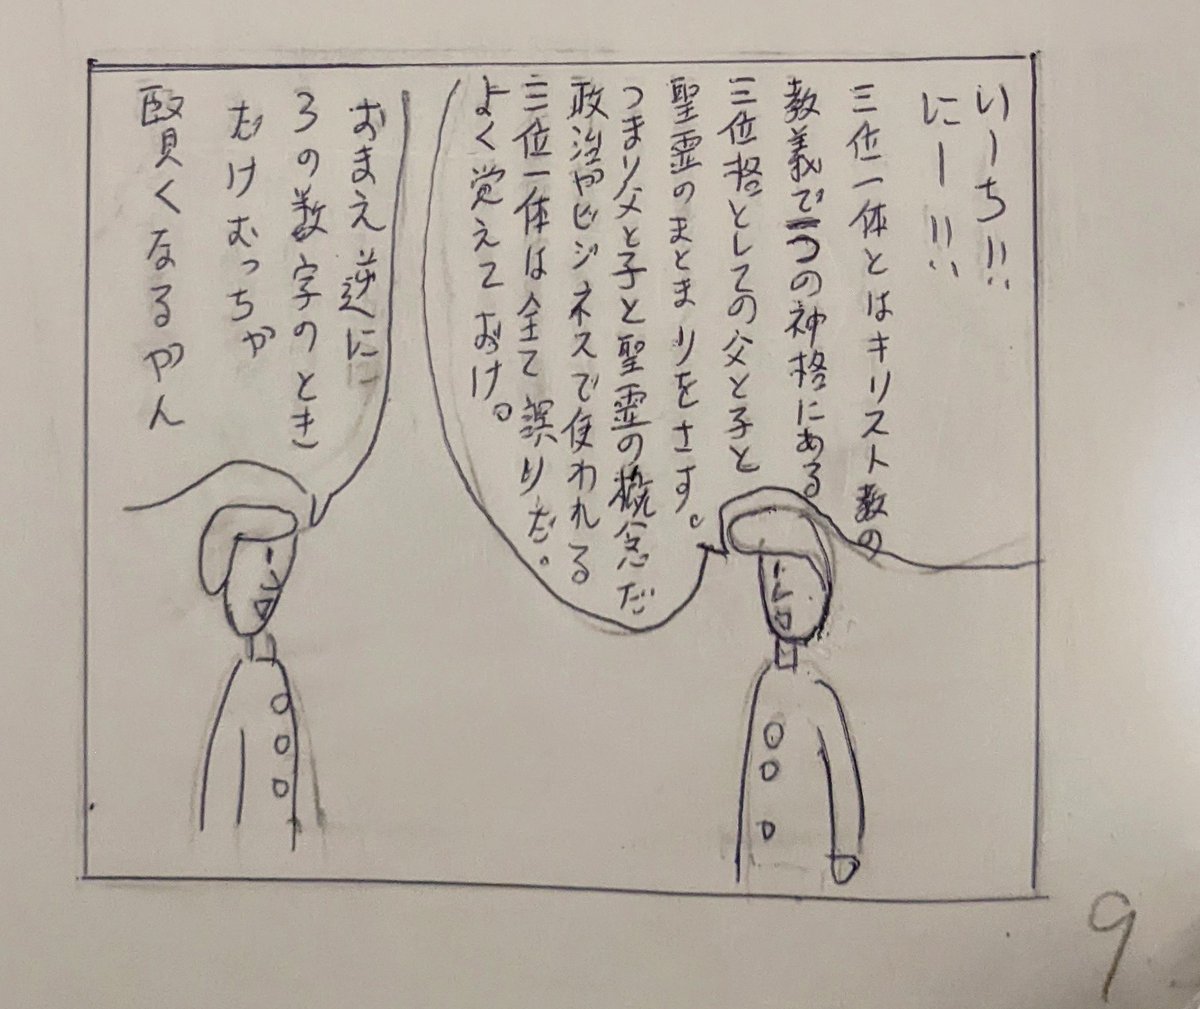 いーち!!
にー!!
三位一体とはキリスト教の
教義で一つの神格にある
三位格としての父と子と
聖霊のまとまりをさす。
つまり父と子と聖霊の概念だ
政治やビジネスで使われる
三位一体は全て誤りだ。
よく覚えておけ。
おまえ逆に
3の数字のとき
だけむっちゃ
賢くなるやん
9